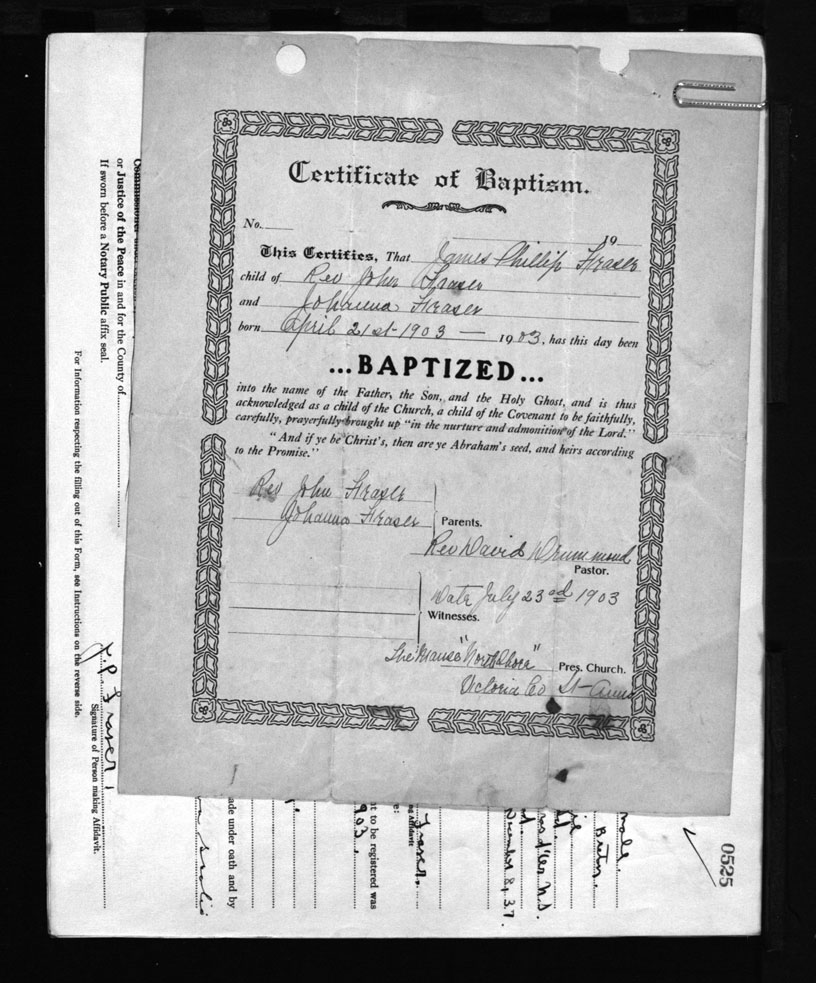 Certificate of Baptism.
No.
19
This Certifies, That James Phillip Fraser
child of Rev John Fraser
and Johanna Fraser
born April 21st 1903 — 1903, has this day been
...BAPTIZED...
into the name of the Father, the Son, and the Holy Ghost, and is thus
acknowledged as a child of the Church, a child of the Covenant to be faithfully,
carefully, prayerfully brought up "in the nurture and admonition of the Lord."
"And if ye be Christ's, then are ye Abraham's seed, and heirs according
to the Promise."
Rev John Fraser
Johanna Fraser
Parents.
Rev David Drummond
Pastor.
Date July 23rd 1903
Witnesses.
The Manse "North Shore" Pres. Church.
Victoria Co St Anns
or Justice of the Peace in and for the County of
If sworn before a Notary Public affix seal.
For Information respecting the filling out of this Form, see Instructions on the reverse side.
J.P. Fraser
Signature of Person making Affidavit.
ade under oath and by
nt to be registered was
903.
ng Affidavit
Fraser.
December 8, 37.
N.S.
0525